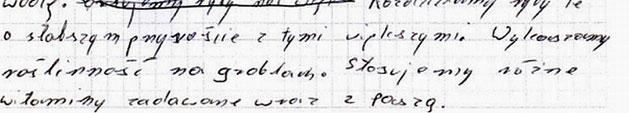 wodę. Rozdzielamy ryby te
o słabszym przyroście z tymi większymi. Wykaszamy
roślinność na groblach. Stosujemy różne
witaminy zadawane wraz z paszą.